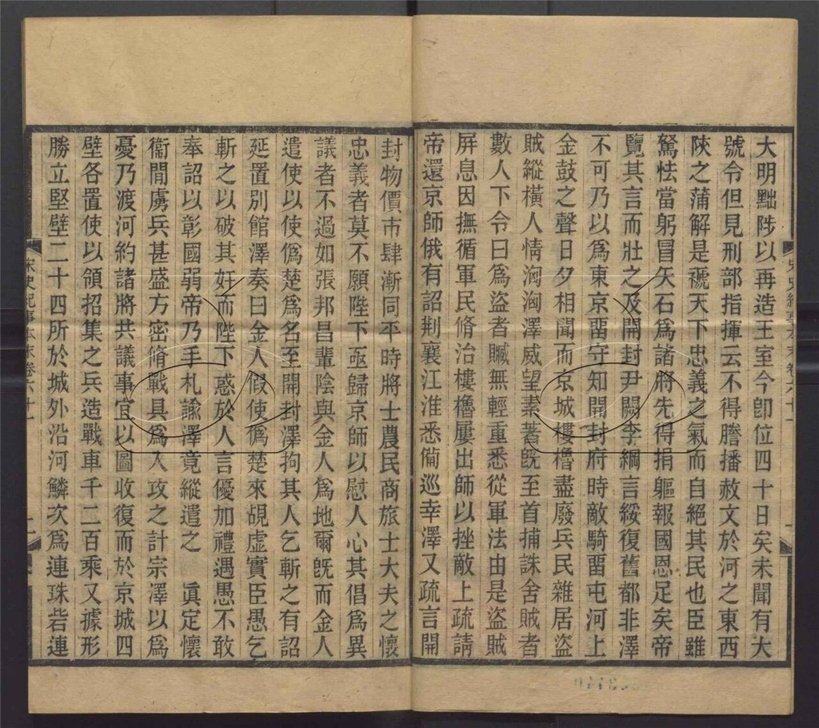 大明黜陟以再造王室今卽位四十日矣未聞有大
號令但見刑部指揮云不得謄播赦文於河之東西
陜之蒲解是褫天下忠義之氣而自絕其民也臣雖
駑怯當躬冒矢石爲諸將先得捐軀報國恩足矣帝
覽其言而壯之及開封尹闕李綱言綏復舊都非澤
不可乃以爲東京畱守知開封府時敵騎畱屯河上
金鼓之聲日夕相聞而京城樓櫓盡廢兵民雜居盜
賊縱橫人情洶洶澤威望素著旣至首捕誅舍賊者
數人下令曰爲盜者贓無輕重悉從軍法由是盜賊
屏息因撫循軍民脩治樓櫓屢出師以挫敵上疏請
帝還京師俄有詔荆襄江淮悉備巡幸澤又疏言開
宋史紀事本末卷六十一
封物價市肆漸同平時將士農民商旅士大夫之懷
忠義者莫不願陛下亟歸京師以慰人心其倡爲異
議者不過如張邦昌輩陰與金人爲地爾旣而金人
遣使以使僞楚爲名至開封澤拘其人乞斬之有詔
延置別館澤奏曰金人假使僞楚來覘虛實臣愚乞
斬之以破其奸而陛下惑於人言優加禮遇愚不敢
奉詔以彰國弱帝乃手札諭澤竟縱遣之　眞定懷
衞閒虜兵甚盛方密脩戰具爲入攻之計宗澤以爲
憂乃渡河約諸將共議事宜以圖收復而於京城四
壁各置使以領招集之兵造戰車千二百乘又據形
勝立堅壁二十四所於城外沿河鱗次爲連珠砦連
宋史紀事本末卷六十一